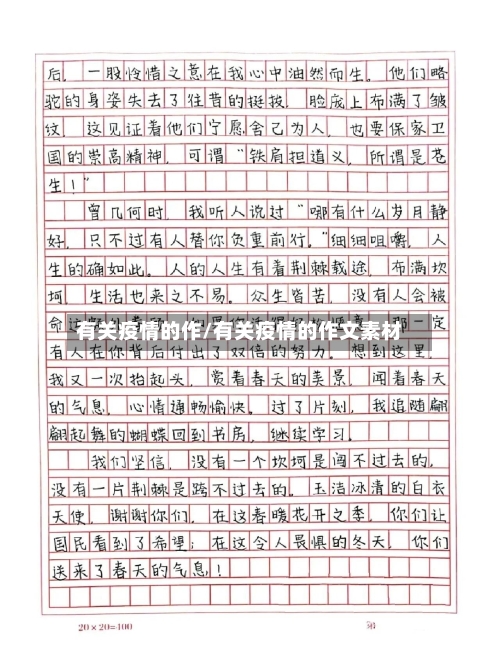 后，一股怜惜之意在我心中油然而生。他们略
驼的身姿失去了往昔的挺拔，脸庞上布满了皱
纹，这见证着他们宁愿舍己为人，也要保家卫
国的崇高精神，可谓“铁肩担道义，所谓是苍
生！”
曾几何时，我听人说过“哪有什么岁月静
好，只不过有人替你负重前行。”细细咀嚼，人
生的确如此。人的人生有着荆棘载途，布满坎
坷，生活也来之不易。众生皆苦，没有人会被
命
一定
有关疫情的作/有关疫情的作文素材
有人在你背后付出了双倍的努力。想到这里，
我又一次抬起头，赏着春天的美景，闻着春天
的气息，心情通畅愉快。过了片刻，我追随翩
翩起舞的蝴蝶回到书房，继续学习。
我们坚信，没有一个坎坷是闯不过去的，
没有一片荆棘是跨不过去的。玉洁冰清的白衣
天使，谢谢你们，在这春暖花开之季，你们让
国民看到了希望；在这令人畏惧的冬天，你们
送来了春天的气息！
20×20=400